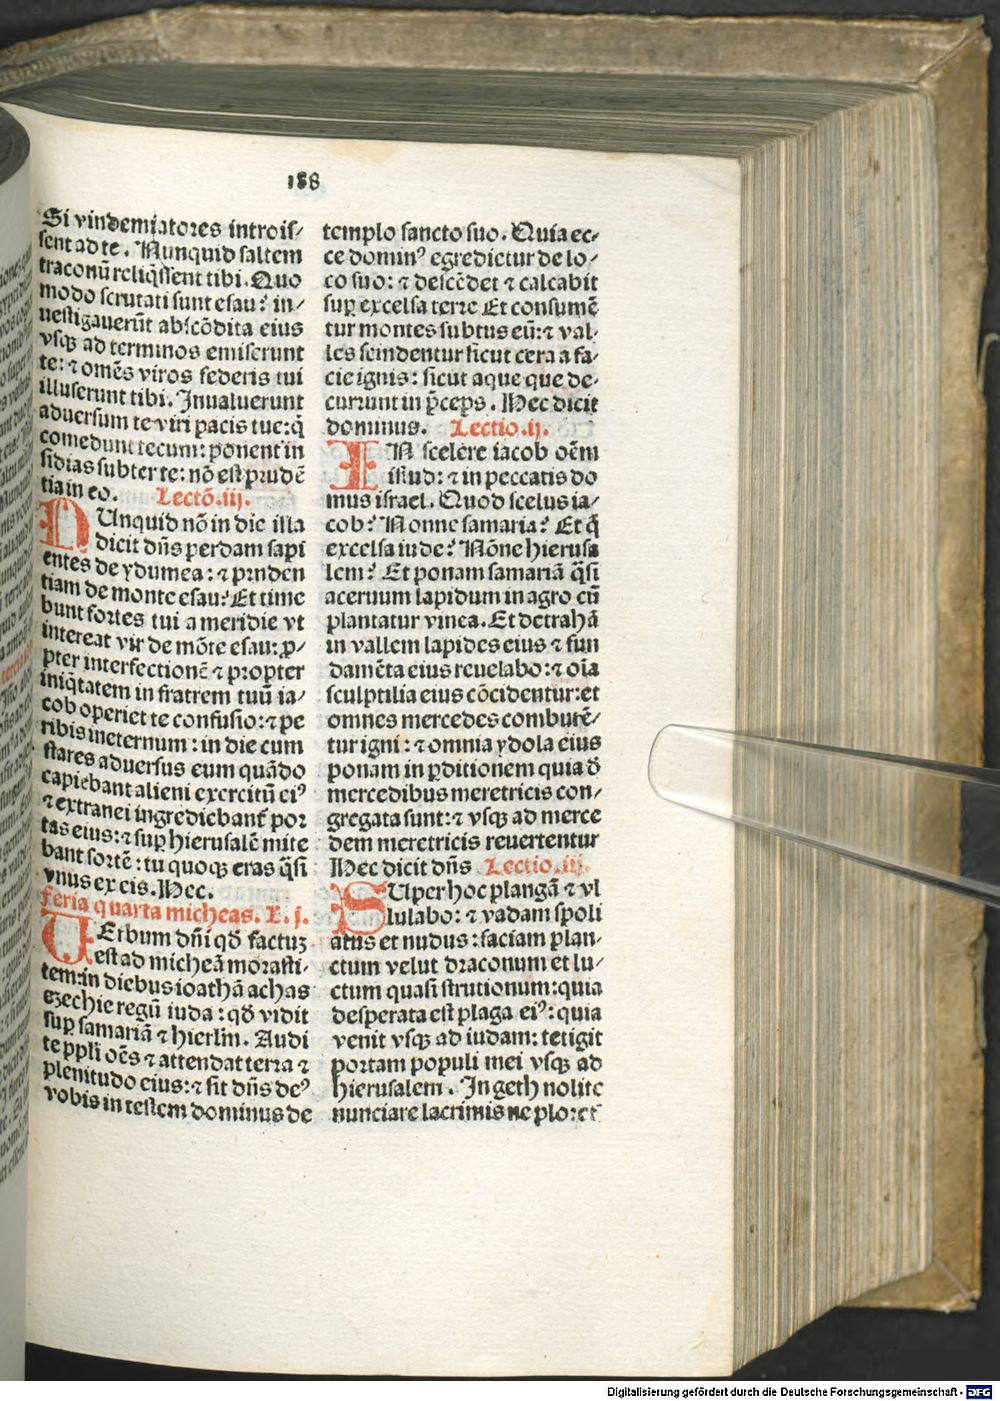 188
Si vindemiatores introis⸗
sent ad te. Nunquid saltem
traconū reliq̄ssent tibi. Quo
modo scrutati sunt esau? in⸗
uestigauerūt abscōdita eius
vsqꝫ ad terminos emiserunt
te: ⁊ omēs viros federis tui
illuserunt tibi. Inualuerunt
aduersum te viri pacis tue: q̄
comedunt tecum: ponent in
sidias subter te: nō est prudē
tia in eo. Lectō.iij.
NUnquid nō in die illa
dicit dn̄s perdam sapi
entes de ydumea: ⁊ pruden
tiam de monte esau? Et time
bunt fortes tui a meridie vt
intereat vir de mōte esau: ꝓ⸗
pter interfectionē ⁊ propter
iniq̄tatem in fratrem tuū ia⸗
cob operiet te confusio: ⁊ pe
ribis ineternum: in die cum
stares aduersus eum quādo
capiebant alieni exercitū eiꝰ
⁊ extranei ingrediebant̄ por
tas eius: ⁊ suꝑ hierusalē mite
bant sortē: tu quoqꝫ eras q̄si
vnus ex eis. Hec.
feria quarta micheas. L. j.
UErbum dn̄i qđ factuꝫ
est ad micheā morasti⸗
tem: in diebus ioathā achas
ezechie regū iuda: qđ vidit
suꝑ samariā ⁊ hierlm̄. Audi
te ppli oēs ⁊ attendat terra ⁊
plenitudo eius: ⁊ sit dn̄s deꝰ
vobis in testem dominus de
templo sancto suo. Quia ec⸗
ce dominꝰ egredictur de lo⸗
co suo: ⁊ descēdet ⁊ calcabit
suꝑ excelsa terre Et consumē
tur montes subtus eū: ⁊ val⸗
les scindentur sicut cera a fa⸗
cie ignis: sicut aque que de⸗
currunt in p̄ceps. Hec dicit
dominus. Lectio.ij.
IN scelere iacob oēm
istud: ⁊ in peccatis do
mus israel. Quod scelus ia⸗
cob? Nonne samaria? Et q̄
excelsa iude? Nōne hierusa
lem? Et ponam samariā q̄si
aceruum lapidum in agro cū
plantatur vinea. Et detrahā
in vallem lapides eius ⁊ fun
damēta eius reuelabo: ⁊ oīa
sculptilia eius cōcidentur: et
omnes mercedes comburē⸗
tur igni: ⁊ omnia ydola eius
ponam in ꝑditionem quia đ
mercedibus meretricis con⸗
gregata sunt: ⁊ vsqꝫ ad merce
dem meretricis reuertentur
Hec dicit dn̄s Lectio.iij.
SUper hoc plangā ⁊ vl
lulabo: ⁊ vadam spoli
atus et nudus: faciam plan⸗
ctum velut draconum et lu⸗
ctum quasi strutionum: quia
desperata est plaga eiꝰ: quia
venit vsqꝫ ad iudam: tetigit
portam populi mei vsqꝫ ad
hierusalem. In geth nolite
nunciare lacrimis ne ploret̄
Digitalisierung gefördert durch die Deutsche Forschungsgemeinschaft - DFG